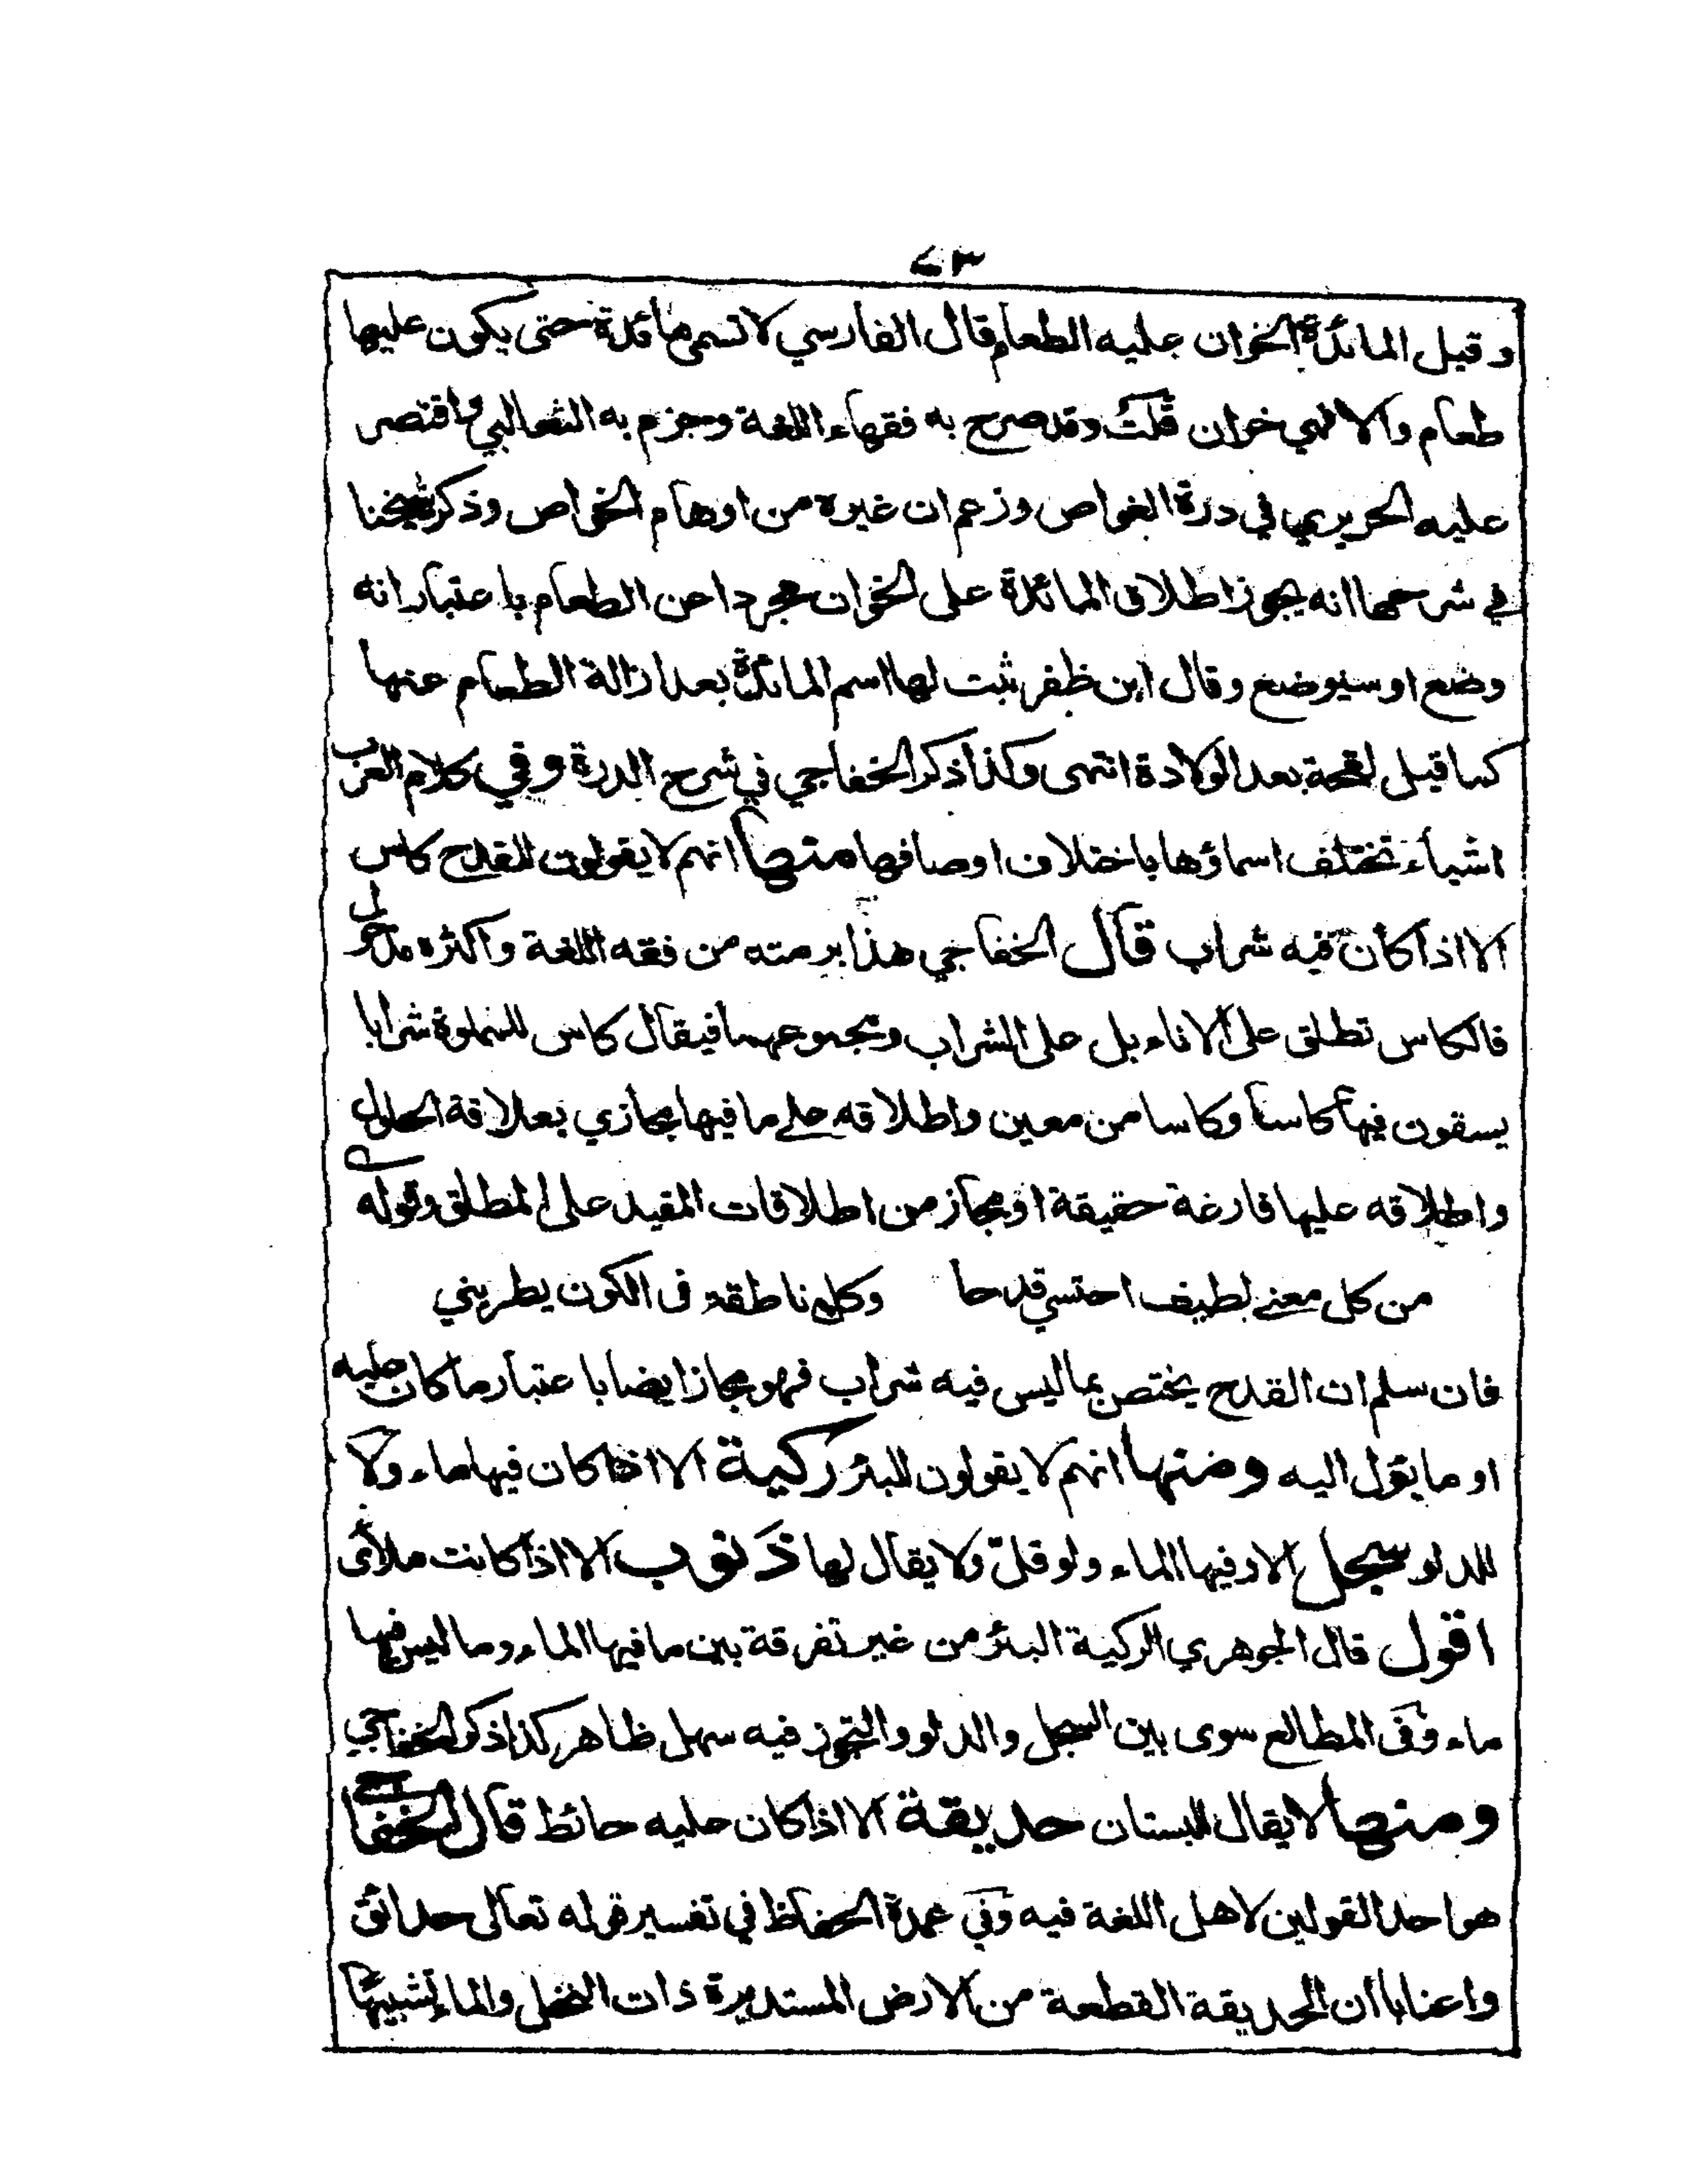 ٧٣
وقيل المائدة الخوان عليه الطعام قال الفارسي لا تسمى مائدة حتى يكون عليها
طعام والا فهي خوان قلت وقد صرح به فقهاء اللغة وجزم به الثعالبي واقتصر
عليه الحريري في درة الغواص وزعم ان غيره من اوهام الخواص وذكر شيخنا
في شرحها انه يجوز اطلاق المائدة على الخوان مجردا عن الطعام باعتبار انه
وضع او سيوضع وقال ابن ظفر ثبت لها اسم المائدة بعد ازالة الطعام عنها
كما قيل لقحة بعد الولادة انتهى وكذا ذكر الخفاجي في شرح الدرة وفي كلام العرب
اشياء تختلف اسماؤها باختلاف اوصافها منها انهم لا يقولون للقدح كاس
الا اذا كان فيه شراب قال الخفاجي هذا برمته من فقه اللغة واكثره مدخول
فالكاس تطلق على الاناء بل على الشراب ومجموعهما فيقال كاس للمملوة شرابا
يسقون فيها كاسا وكاسا من معين واطلاقه على ما فيها مجازي بعلاقة الحلول
واطلاقه عليها فارغة حقيقة او مجاز من اطلاقات المقيد على المطلق وقوله
من كل معنى لطيف احتسي قدحا وكل ناطقة في الكون يطربني
فان سلم ان القدح يختص بما ليس فيه شراب فهو مجاز ايضا باعتبار ما كان عليه
او ما يؤل اليه ومنها انهم لا يقولون للبئر ركية الا اذا كان فيها ماء ولا
للدلو سجل الا وفيها الماء ولو قلّ ولا يقال لها ذنوب الا اذا كانت ملأى
اقول قال الجوهري الركية البئر من غير تفرقة بين ما فيها الماء وما ليس فيها
ماء وفي المطالع سوى بين السجل والدلو والتجوز فيه سهل ظاهر كذا ذكر الخفاجي
ومنها لا يقال للبستان حديقة الا اذا كان عليه حائط قال الخفاجي
هو احد القولين لاهل اللغة فيه وفي عمدة الحفاظ في تفسير قوله تعالى حدائق
واعنابا أن الحديقة القطعة من الارض المستديرة ذات النخل والماء تشبيها